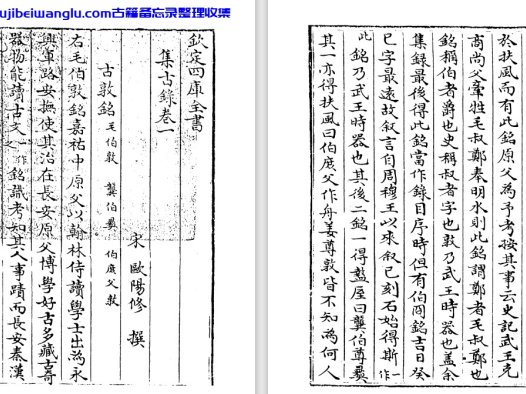 ujibeiwanglu.com古籍备忘录整理收集
欽定四庫全書
集古錄卷一
宋 歐陽修 撰
古敦銘 毛伯敦 龔伯彝 伯庶父敦
右毛伯敦銘嘉祐中原父以翰林侍讀學士出為永
興軍路安撫使其治在長安原父博學好古多藏古奇
器物能讀古文一作銘識考知其人事蹟而長安秦漢
於扶風原父為予考按其事云史記武王克
商尚父牽牲毛叔鄭奉明水則此銘謂鄭者毛叔鄭也
銘稱伯者爵也史稱叔者字也敦乃武王時器也蓋余
集錄最後得此銘當作錄目序時但有伯冏銘吉日癸
巳字最遠故敘言自周穆王以來敘已刻石始得斯一作
此銘乃武王時器也其後二銘一得盩厔曰龔伯尊彝
其一亦得扶風曰伯庶父作舟姜尊敦皆不知為何人